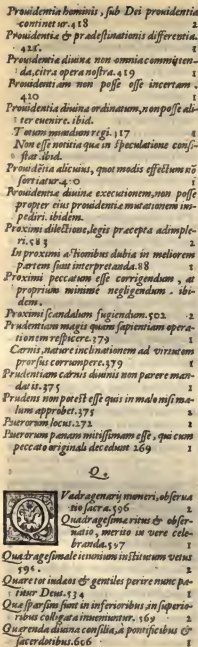 Prouidentia hominis, sub Dei prouidentia
continetur. 418 2
Prouidentiæ & prædestinationis differentia.
428. 1
Prouidentiæ diuinæ non omnia committen-
da, citra opera nostra. 419 1
Prouidentiam non posse esse incertam
420 1
Prouidentia diuina ordinatum, non posse ali-
ter euenire. ibid.
Totum mundum regi. 317 8
Non esse notitia quæ in speculatione consi-
stat. ibid.
Prouidētia alicuius, quot modis effectum nō
sortiatur. 420 1
Prouidentiæ diuinæ executionem, non posse
propter eius prouidentiæ mutationem im-
pediri. ibidem.
Proximi dilectione, legis præcepta adimple-
ri. 583 2
In proximi actionibus dubia in meliorem
partem sunt interpretanda. 88 1
Proximi peccatum esse corrigendum, at
proprium minimè negligendum. ibi-
dem.
Proximi scandalum fugiendum. 502 2
Prudentiam magis quàm sapientiam opera-
tionem respicere. 379 1
Carnis, naturæ inclinationem ad virtutem
prorsus corrumpere. 379 1
Prudentiam carnis diuinis non parere man-
datis. 375 1
Prudens non potest esse quis in malo nisi ma-
lum approbet. 375 2
Puerorum locus. 272 2
Puerorum pœnam mitissimam esse, qui cum
peccato originali decedunt 269 1
Q.
QVadragenarij numeri, obserua
tio sacra. 596 2
Quadragesimæ ritus & obser-
uatio, meritò in vere cele-
branda. 597 1
Quadragesimale ieiunium institutum vetus
596. 2
Quare tot iudæos & gentiles perire nunc pa-
titur Deus. 534 1
Quæ sparsim sunt in inferioribus, in superio-
ribus colligata inueniuntur. 569 2
Quærenda diuina consilia, à pontificibus &
sacerdotibus. 606 1